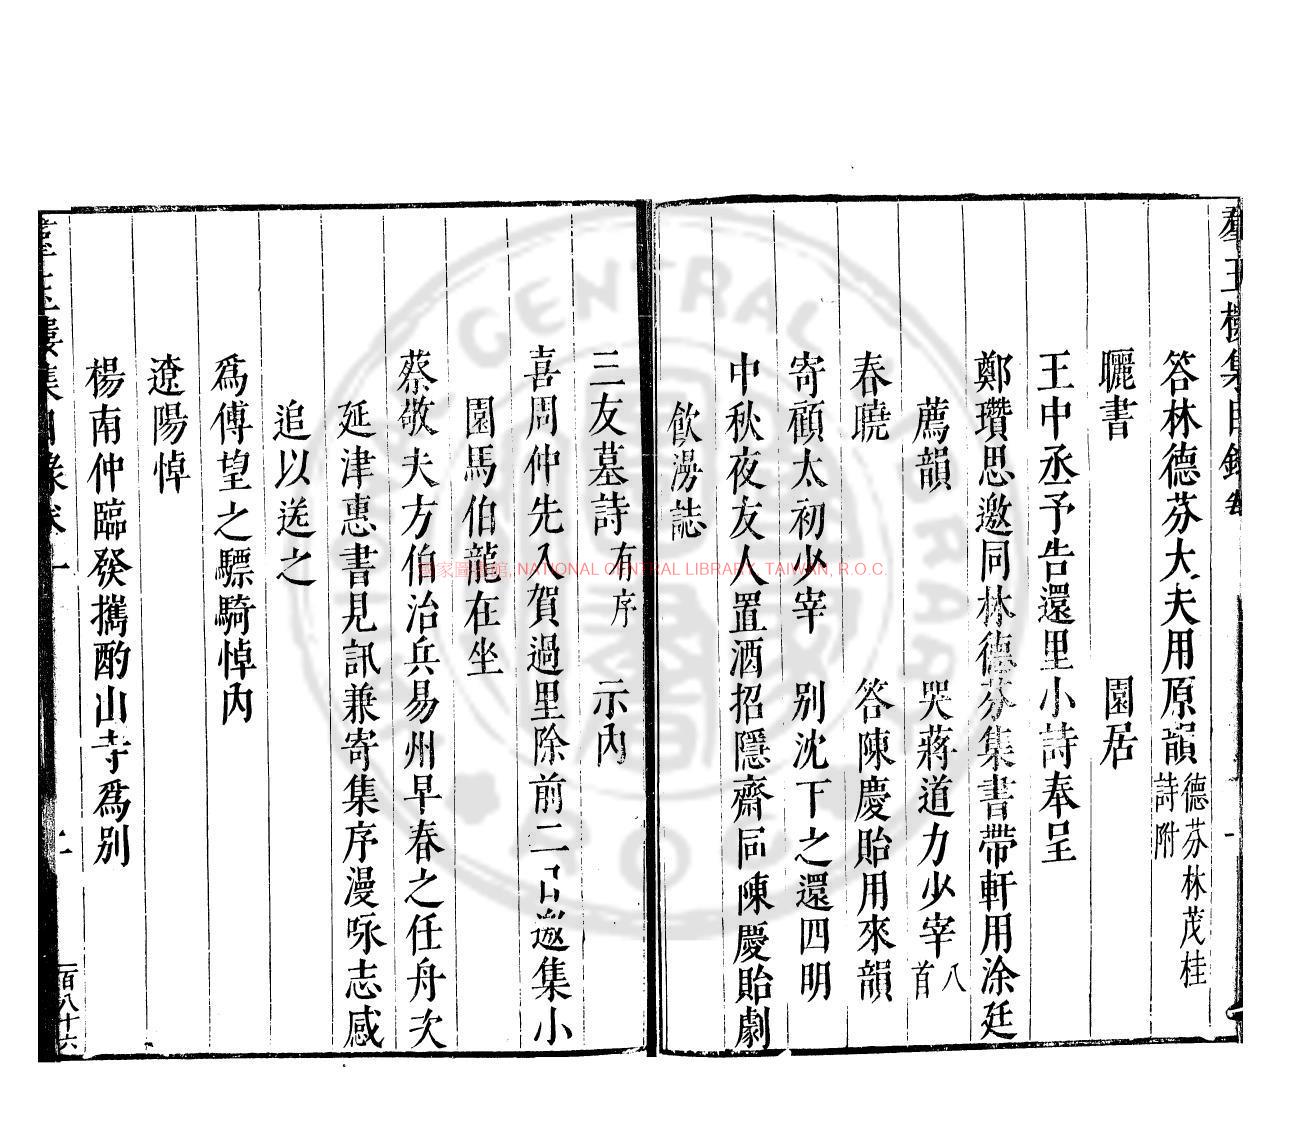 羣玉樓集目錄卷
答林德芬大夫用原韻德芬林茂桂詩附
曬書　園居
王中丞予告還里小詩奉呈
鄭瓚思邀同林德芬集書帶軒用涂廷
薦韻　哭蔣道力少宰八首
春曉　答陳慶貽用來韻
寄顧太初少宰　別沈下之還四明
中秋夜友人置酒招隱齋同陳慶貽劇
飲漫誌
三友墓詩有序　示內
喜周仲先入賀過里除前二日邀集小
園馬伯龍在坐
蔡敬夫方伯治兵易州早春之任舟次
延津惠書見訊兼寄集序漫咏志感
追以送之
爲傅望之驃騎悼內
遼陽悼
楊南仲臨發攜酌山寺爲別
羣玉樓集目錄卷一
二
一百八十六
國家圖書館, NATIONAL CENTRAL LIBRARY, TAIWAN, R.O.C.
NATIONAL CENTRAL LIBRARY
R.O.C.